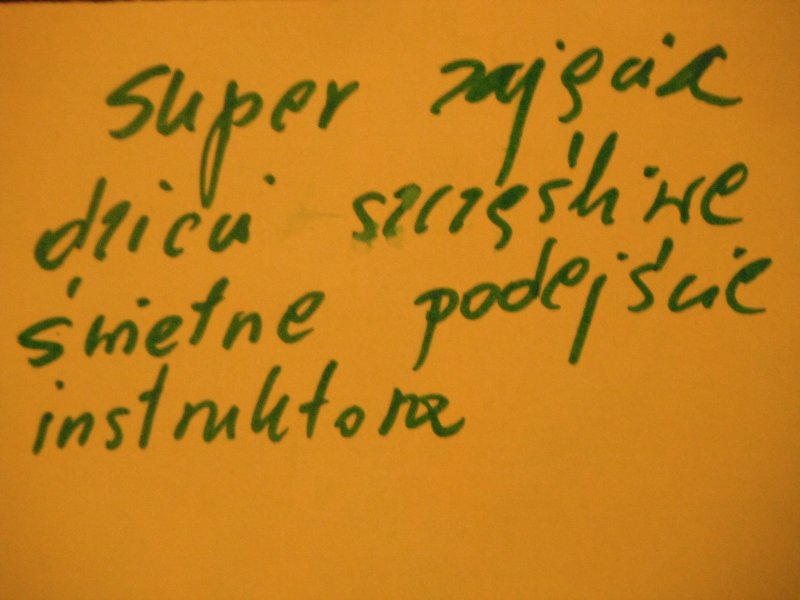 super zajęcia
dzieci szczęśliwe
świetne podejście
instruktora